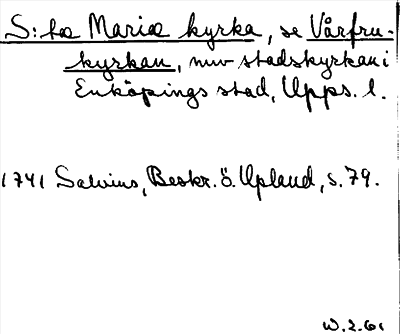 S:ta Mariæ kyrka, se Vårfru-
kyrkan, nuv stadskyrkan i
Enköpings stad, Upps. l.
1741 Salvius, Beskr. ö. Upland, s. 79.
W.2.61